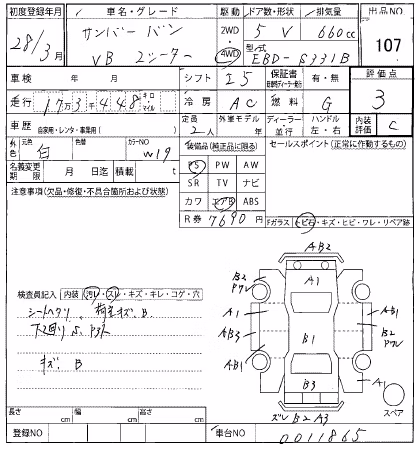 初度登録年月 車名・グレード 駆動 ドア数・形状 排気量 出品NO
28/3月 サンバー バン VB 2シーター 2WD・4WD 5 V 660cc 107
型式 EBD-S331B
車検 年 月 シフト I5 保証書 有・無 評価点
走行 17万3千448 キロ マイル 冷房 AC 燃料 G 3
車歴 自家用・レンタ・事業用( ) 定員 2人 外車モデル 年 ディーラー 並行 ハンドル 左・右 内装評価 C
外色 元色 白 色替 カラーNO W19 装備品(純正品に限る) セールスポイント(正常に動作するもの)
名義変更期限 月 日迄 積載 t PS PW AW
注意事項(欠品・修復・不具合箇所および状態) SR TV ナビ
カワ エアB ABS
R券 7690円 Fガラス トビ石・キズ・ヒビ・ワレ・リペア跡
AB2
B2 Pワレ A1 B2
A1 AB1
検査員記入 内装 汚レ・スレ・キズ・キレ・コゲ・穴
シートヘタリ、荷室キズ、B AB3 B1 B2 Pワレ
下回りS、
キズ B AB1
B3 A1
スペア
ズレ B2 A3
長さ cm 幅 cm 高さ cm
登録NO 車台NO 0011865